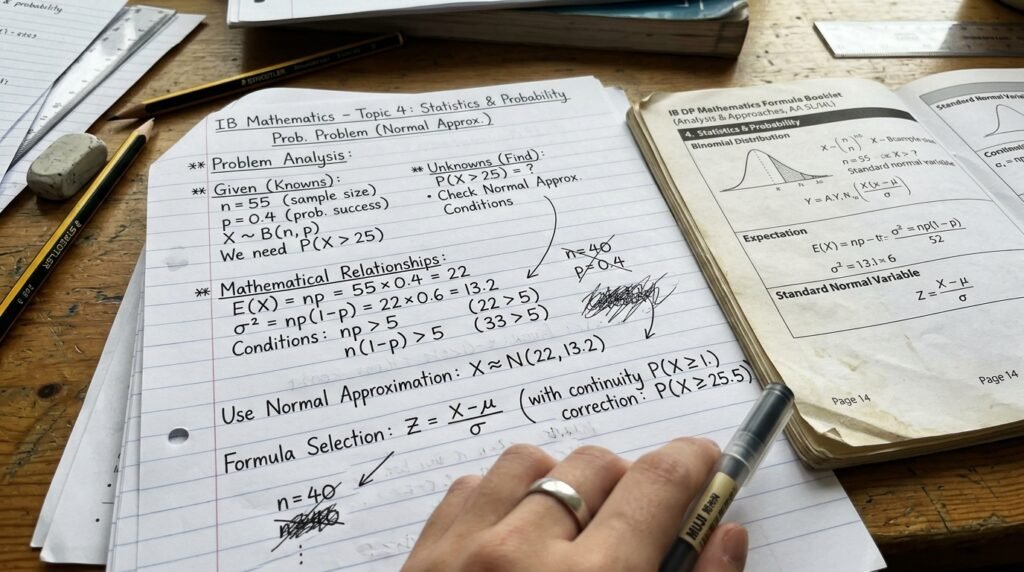 & probability
IB Mathematics – Topic 4: Statistics & Probability
Prob. Problem (Normal Approx.)
** Problem Analysis:
** Given (Knowns):
n = 55 (sample size)
p = 0.4 (prob. success)
X ~ B(n, p)
We need P(X > 25)
* Unknowns (Find):
P(X > 25) = ?
• Check Normal Approx.
Conditions
* Mathematical Relationships:
E(X) = np = 55 × 0.4 = 22
σ² = np(1-p) = 22 × 0.6 = 13.2
Conditions: np > 5 (22 > 5)
n(1-p) > 5 (33 > 5)
n = 40
p = 0.4
Use Normal Approximation: X ≈ N(22, 13.2)
Formula Selection: Z = (X - μ)/σ (with continuity P(X ≥ 1)
correction: P(X ≥ 25.5)
n = 40
STAEDTLER
STAEDTLER
MUJI
IB DP Mathematics Formula Booklet
(Analysis & Approaches, AA SL/HL)
4. Statistics & Probability
Binomial Distribution
n = 55
Standard normal variable
Expectation
E(X) = np
σ² = np(1-p)
52
σ² = 13.1×6
Standard Normal Variable
Z = (X - μ)/σ
Page 14
Standard Normal Varia
Page 14